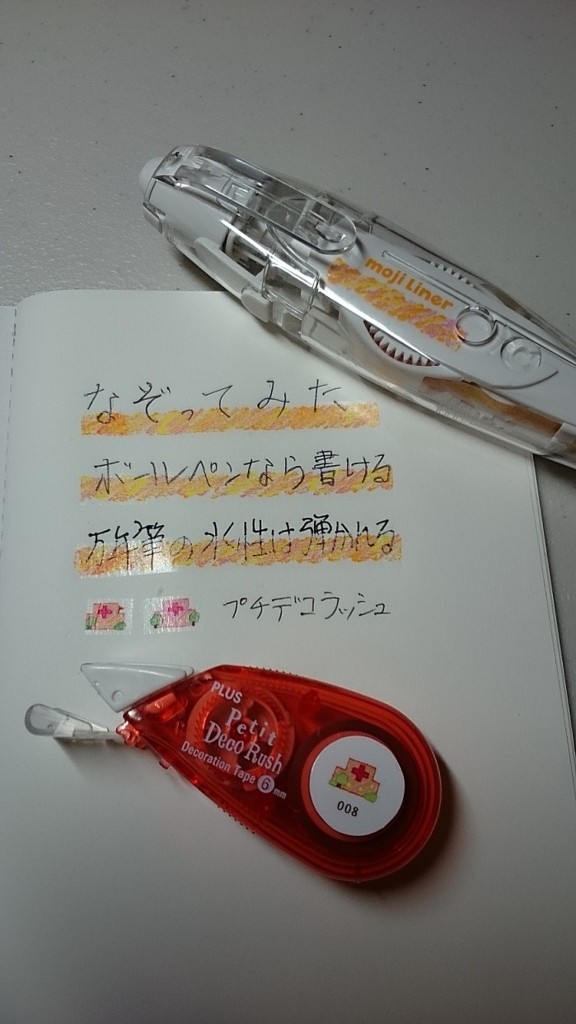 moji Liner
なぞってみた
ボールペンなら書ける
万年筆の水性は弾かれる
プチデコラッシュ
PLUS
Petit
Deco Rush
Decoration Tape 6 mm
008